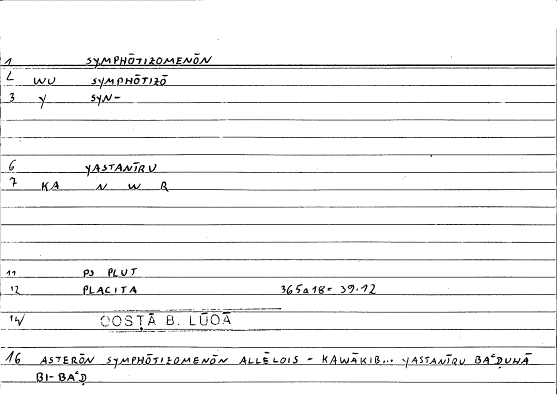 1 SYMPHŌTIZOMENŌN
2 WU SYMPHŌTIZŌ
3 Y SYN-
6 YASTANĪRU
7 KA N W R
11 PS PLUT
12 PLACITA 365a18 = 39.12
14/ QOSṬĀ B. LŪQĀ
16 ASTERŌN SYMPHŌTIZOMENŌN ALLĒLOIS - KAWĀKIB... YASTANĪRU BAʿḌUHĀ
BI-BAʿḌ